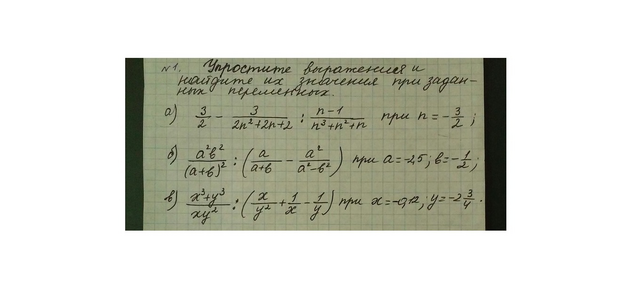 №1. Упростите выражения и
найдите их значения при задан-
ных переменных.
а) 3/2 - 3/(2n²+2n+2) : (n-1)/(n³+n²+n) при n = -3/2;
б) a²b²/(a+b)² : (a/(a+b) - a²/(a²-b²)) при a = -2,5; b = -1/2;
в) (x³+y³)/(xy²) : (x/y² + 1/x - 1/y) при x = -0,12; y = -2 3/4.